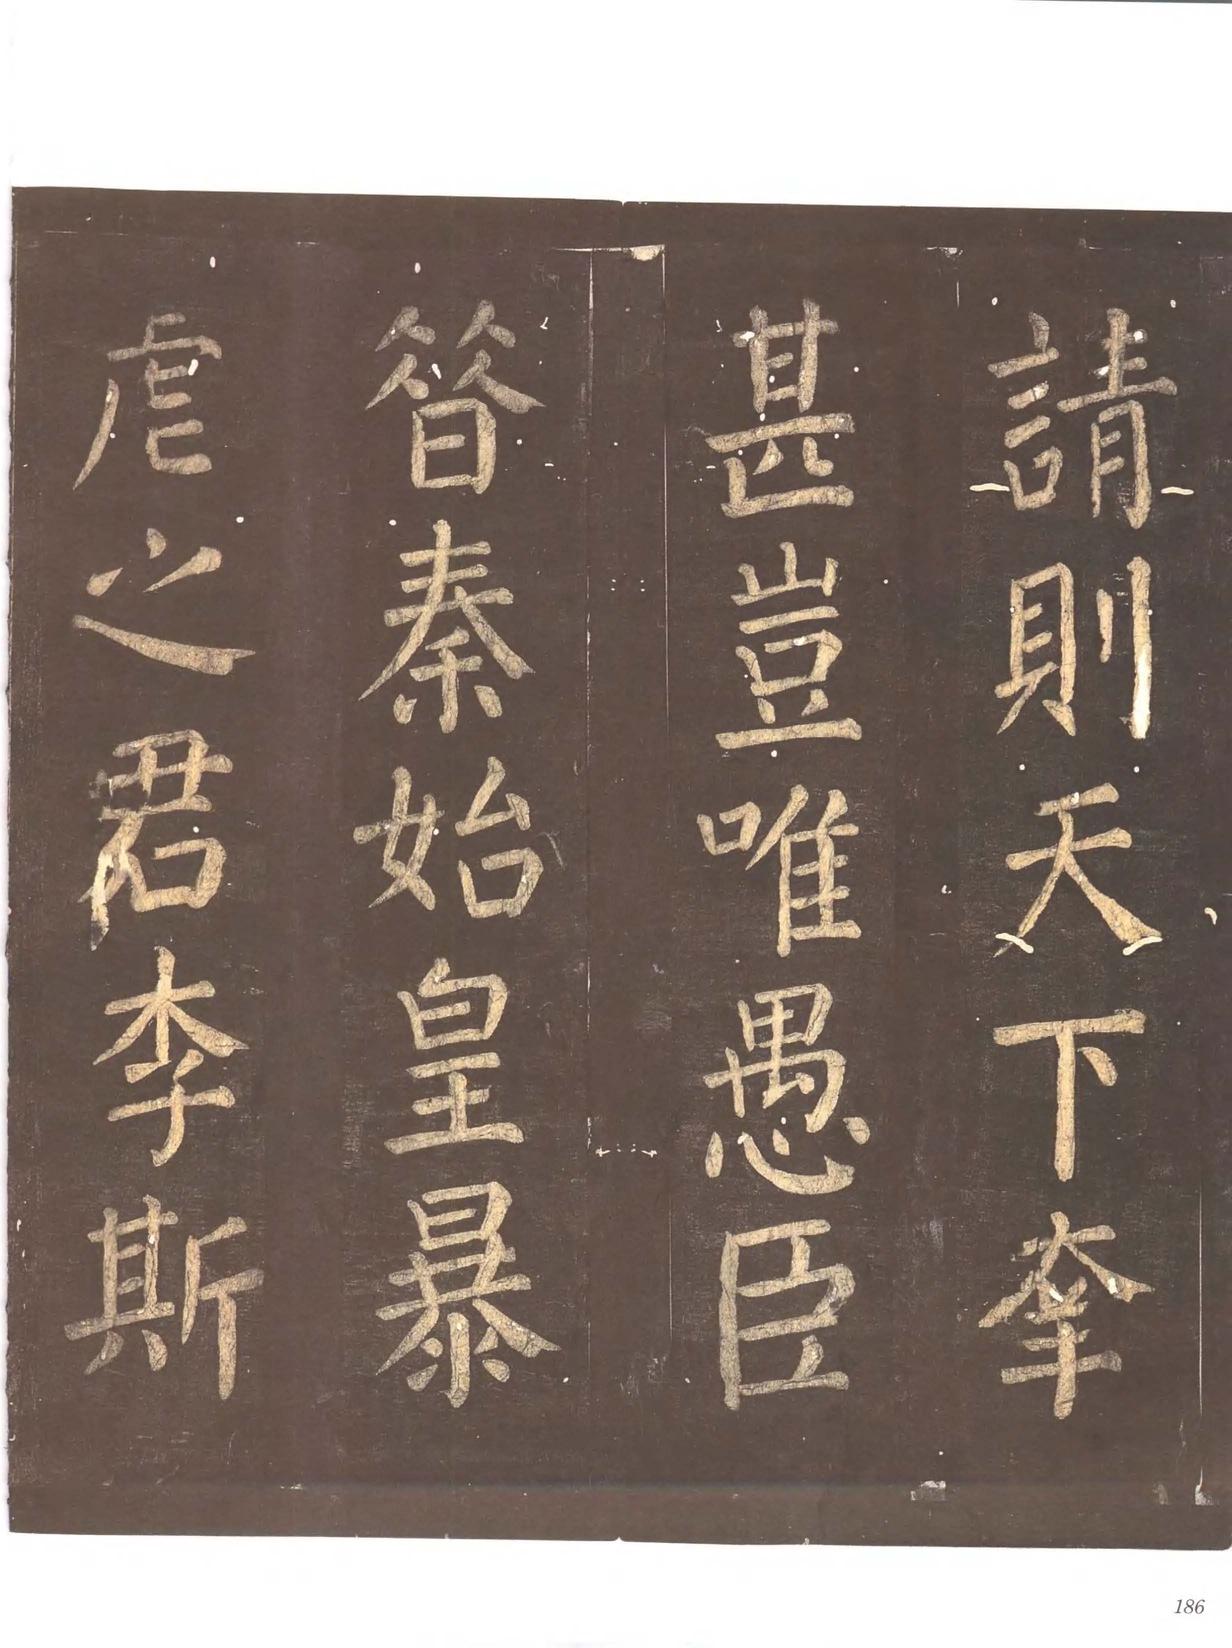 請則天下幸
甚豈唯愚臣
昔秦始皇暴
虐之君李斯
186